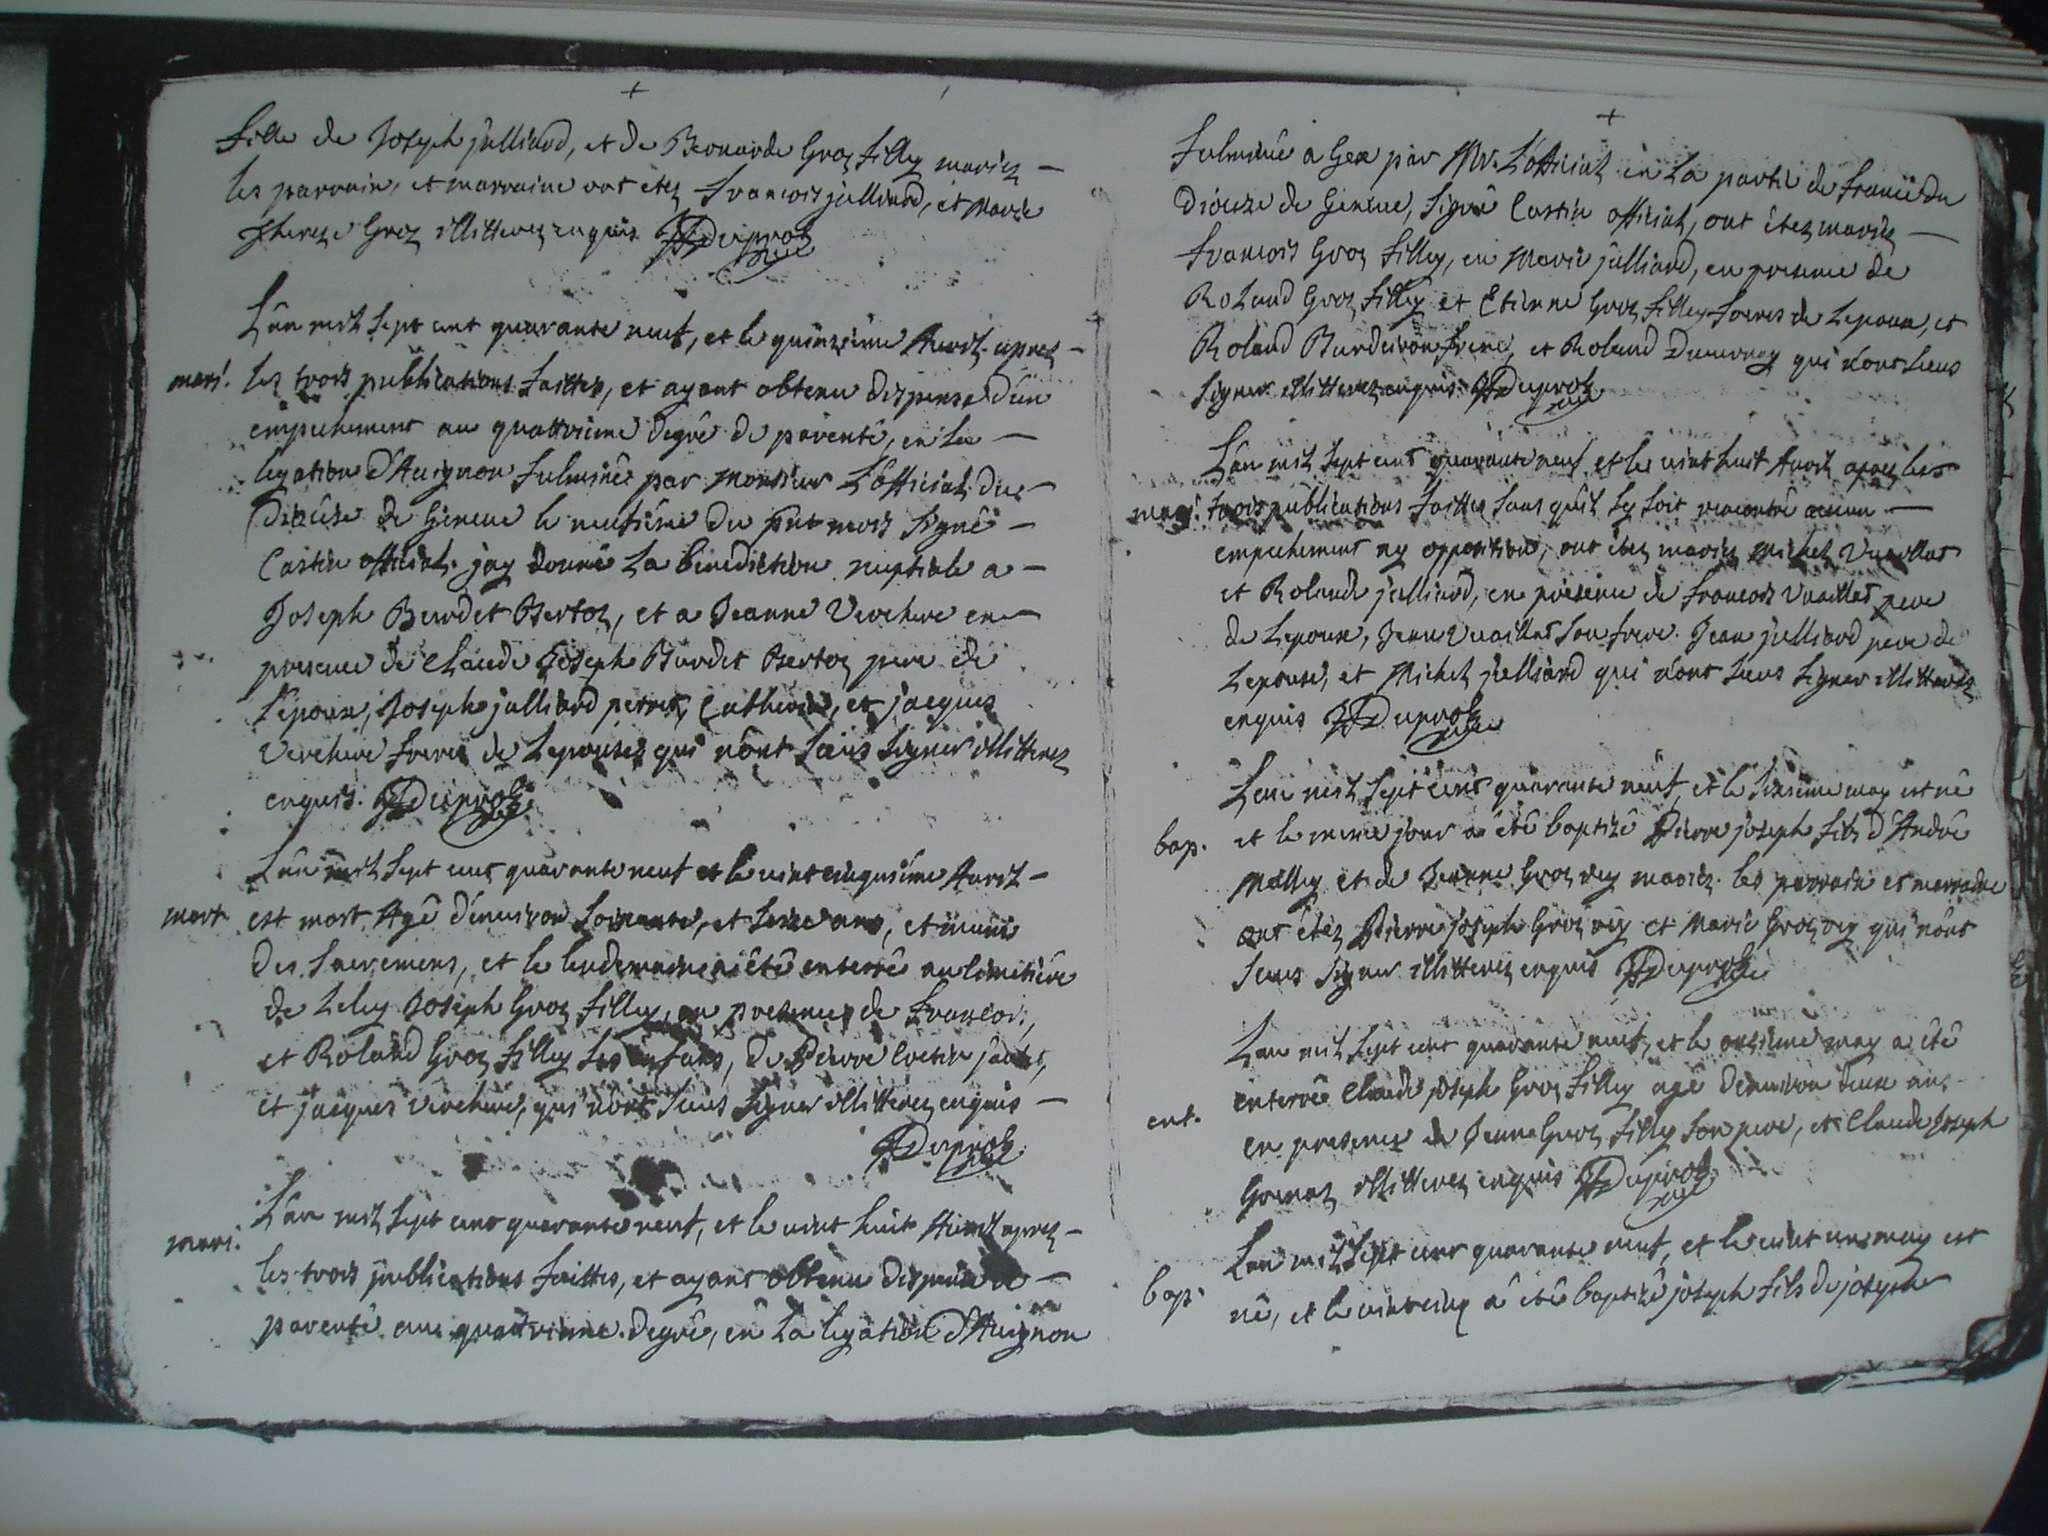 +
fille de Joseph julliard, et de Bernarde Groz filley mariez –
les parrain, et marraine ont etez francois julliard, et Marie
therese Groz illitterez enquis Duproz
L'an mil sept cent quarante neuf, et le quinzieme Avril apres –
mari. les trois publications faittes, et ayant obtenu dispense d'un
empechement au quattrieme degré de parenté, en la –
legation d'Auignon fulminée par Monsieur L'official du –
Diocése de Geneue le neufiéme du pnt mois signé –
Castin official. jay donné La benediction nuptiale a –
Joseph Burdet Bertoz, et a Jeanne Verchere en –
presence de Claude Joseph Burdet Bertoz pere de
l'epoux, Joseph julliard perret, et jacques
Verchere freres de Lepouse, qui n'ont sceus signer illitterez
enquis. Duproz
L'an mil sept cent quarante neuf et le uint cinquiéme Auril –
mort est mort Agé d'enuiron soixante, et seize ans, et muni
des sacremens, et le lendemain a été enterré au cimetiére
de Lelex Joseph Groz filley, en presence de francois,
et Roland Groz filley ses enfans, de Pierre
et jacques verchere, qui n'ont sceus signer illitterez enquis –
Duproz
L'an mil sept cent quarante neuf, et le uint huit Auril apres –
mari. les trois publications faittes, et ayant obtenu dispense de –
parenté au quattrieme degré, en La legation d'Auignon
+
fulminée a Gex par Mr. L'official en La partie de france du
Diocéze de Geneue, signé Castin official, ont étez mariez –
francois Groz filley, et Marie julliard, en presence de
Roland Groz filley et Etienne Groz filley freres de Lepoux, et
Roland et Roland qui n'ont sceus
signer illitterez enquis Duproz
L'an mil sept cent quarante neuf et le uint huit Auril apres les
mari. trois publications faittes sans qu'il sy soit rencontré aucun –
empechement ny opposition, ont étez mariez Michel Vuaillat
et Rolande julliard, en présence de francois Vuaillat pere
de Lepoux, Jean Vuaillat son frere. Jean julliard pere de
Lepouse, et Michel julliard qui n'ont sceus signer illitterez
enquis Duproz
L'an mil sept cent quarante neuf, et le sixieme may est né
bap. et le meme jour a été baptizé Pierre joseph fils d'André
Malley et de Jeanne Groz rey mariez. les parrain et marraine
ont étez Pierre joseph Groz rey et Marie Groz rey qui n'ont
sceus signer illitterez enquis Duproz
L'an mil sept cent quarante neuf, et le onzieme may a été
enterré Claude joseph Groz filley agé d'enuiron deux ans –
ent. en presence de Jean Groz filley son pere, et Claude Joseph
illitterez enquis Duproz
L'an mil sept cent quarante neuf, et le uint un may est
bap. né, et le uint cinq a été baptizé joseph fils de joseph